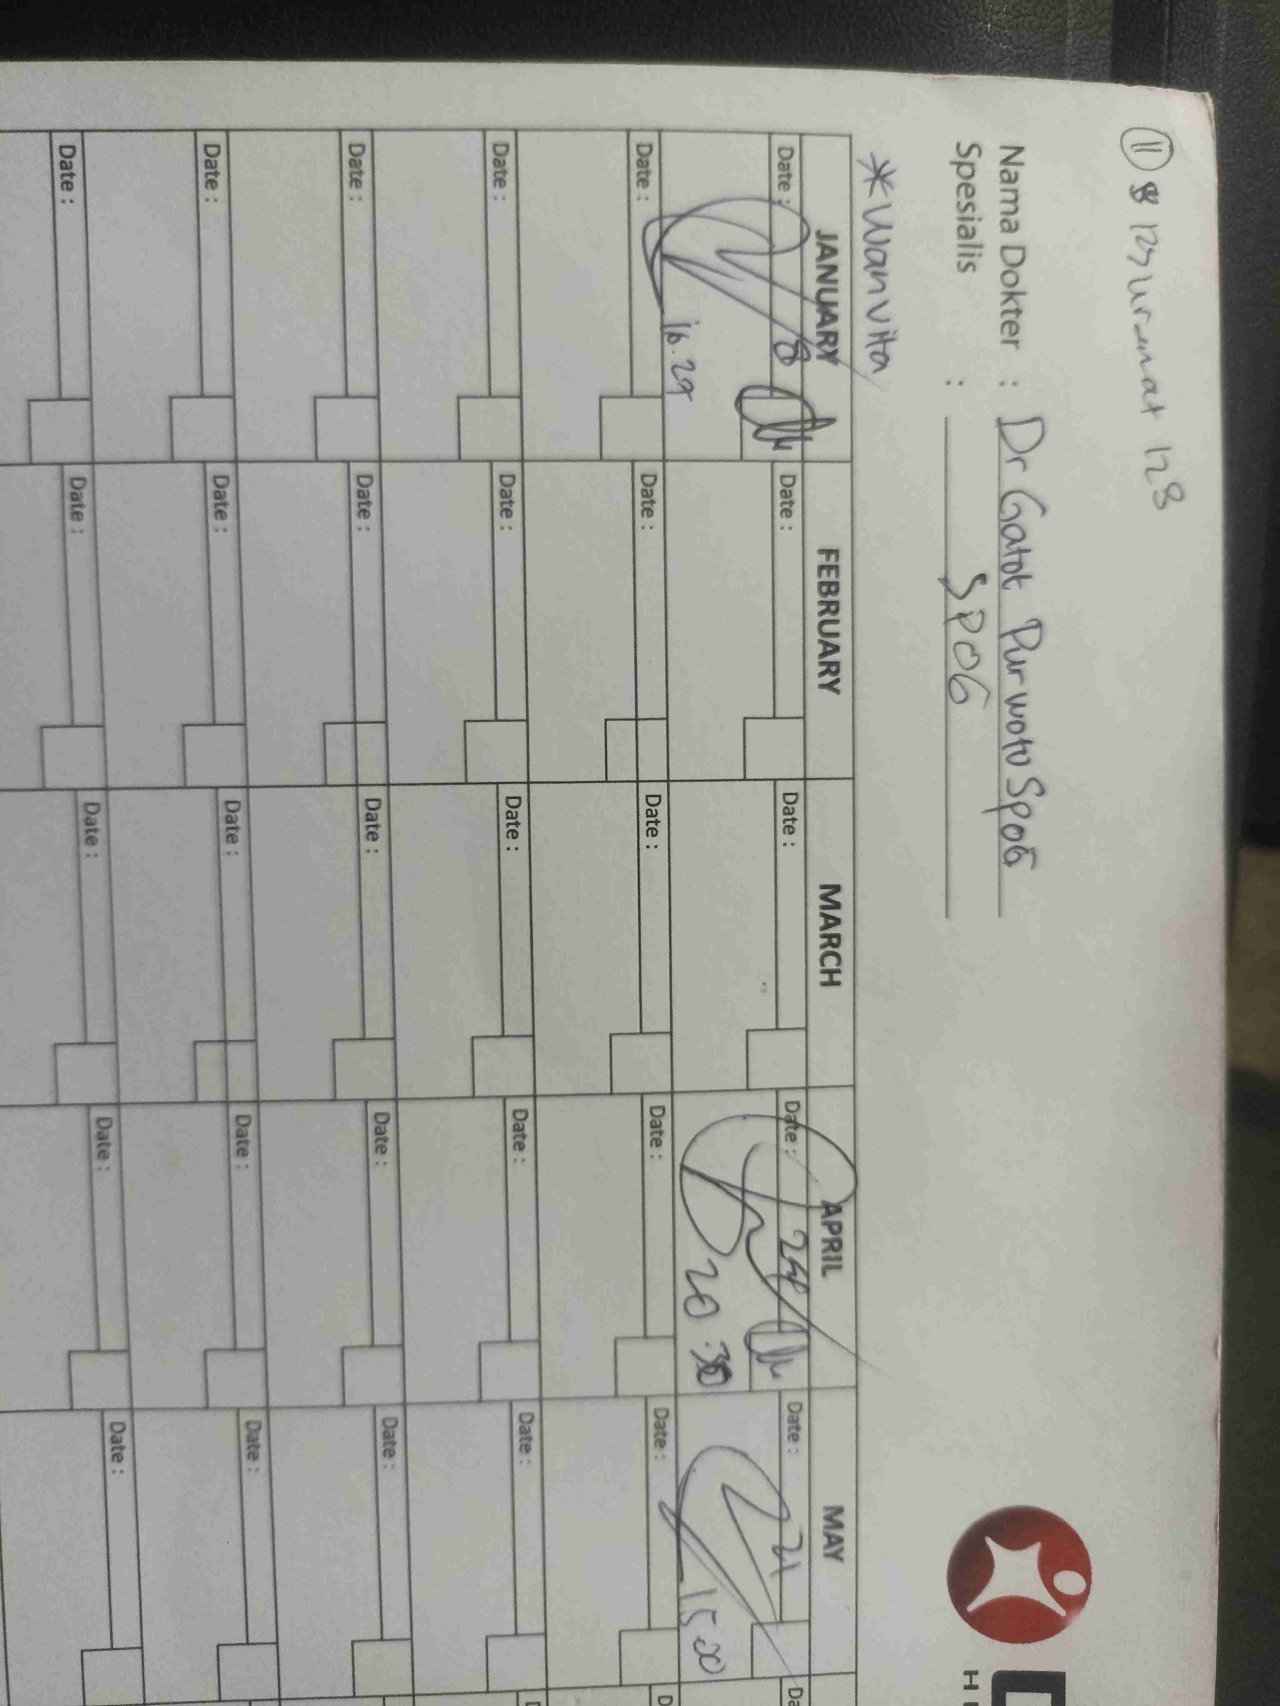 11 128
Nama Dokter : Dr Gatot Purwoto SpOG
Spesialis : SPOG
*Wanvita
JANUARY FEBRUARY MARCH APRIL MAY
Date : 8 Date : Date : Date : 24 Date : 21
16.29 20.30 15.00
Date : Date : Date : Date : Date :
Date : Date : Date : Date : Date :
Date : Date : Date : Date : Date :
Date : Date : Date : Date : Date :
Date : Date : Date : Date : Date :